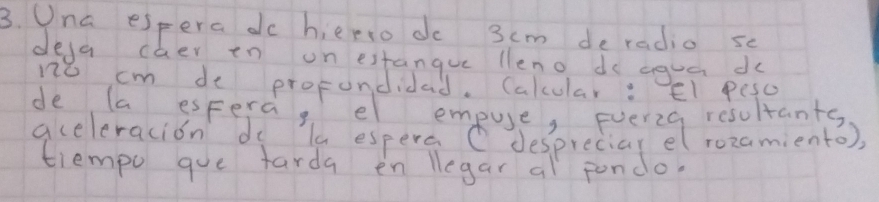 3. Una espera de hierro de 3cm de radio se
deja caer en un estanque lleno de agua de
120 cm de profundidad. Calcular: El peso
de la esfera, el empuje, fuerza resultante,
aceleración de la espera (despreciar el rozamiento),
tiempo que tarda en llegar al fondo.